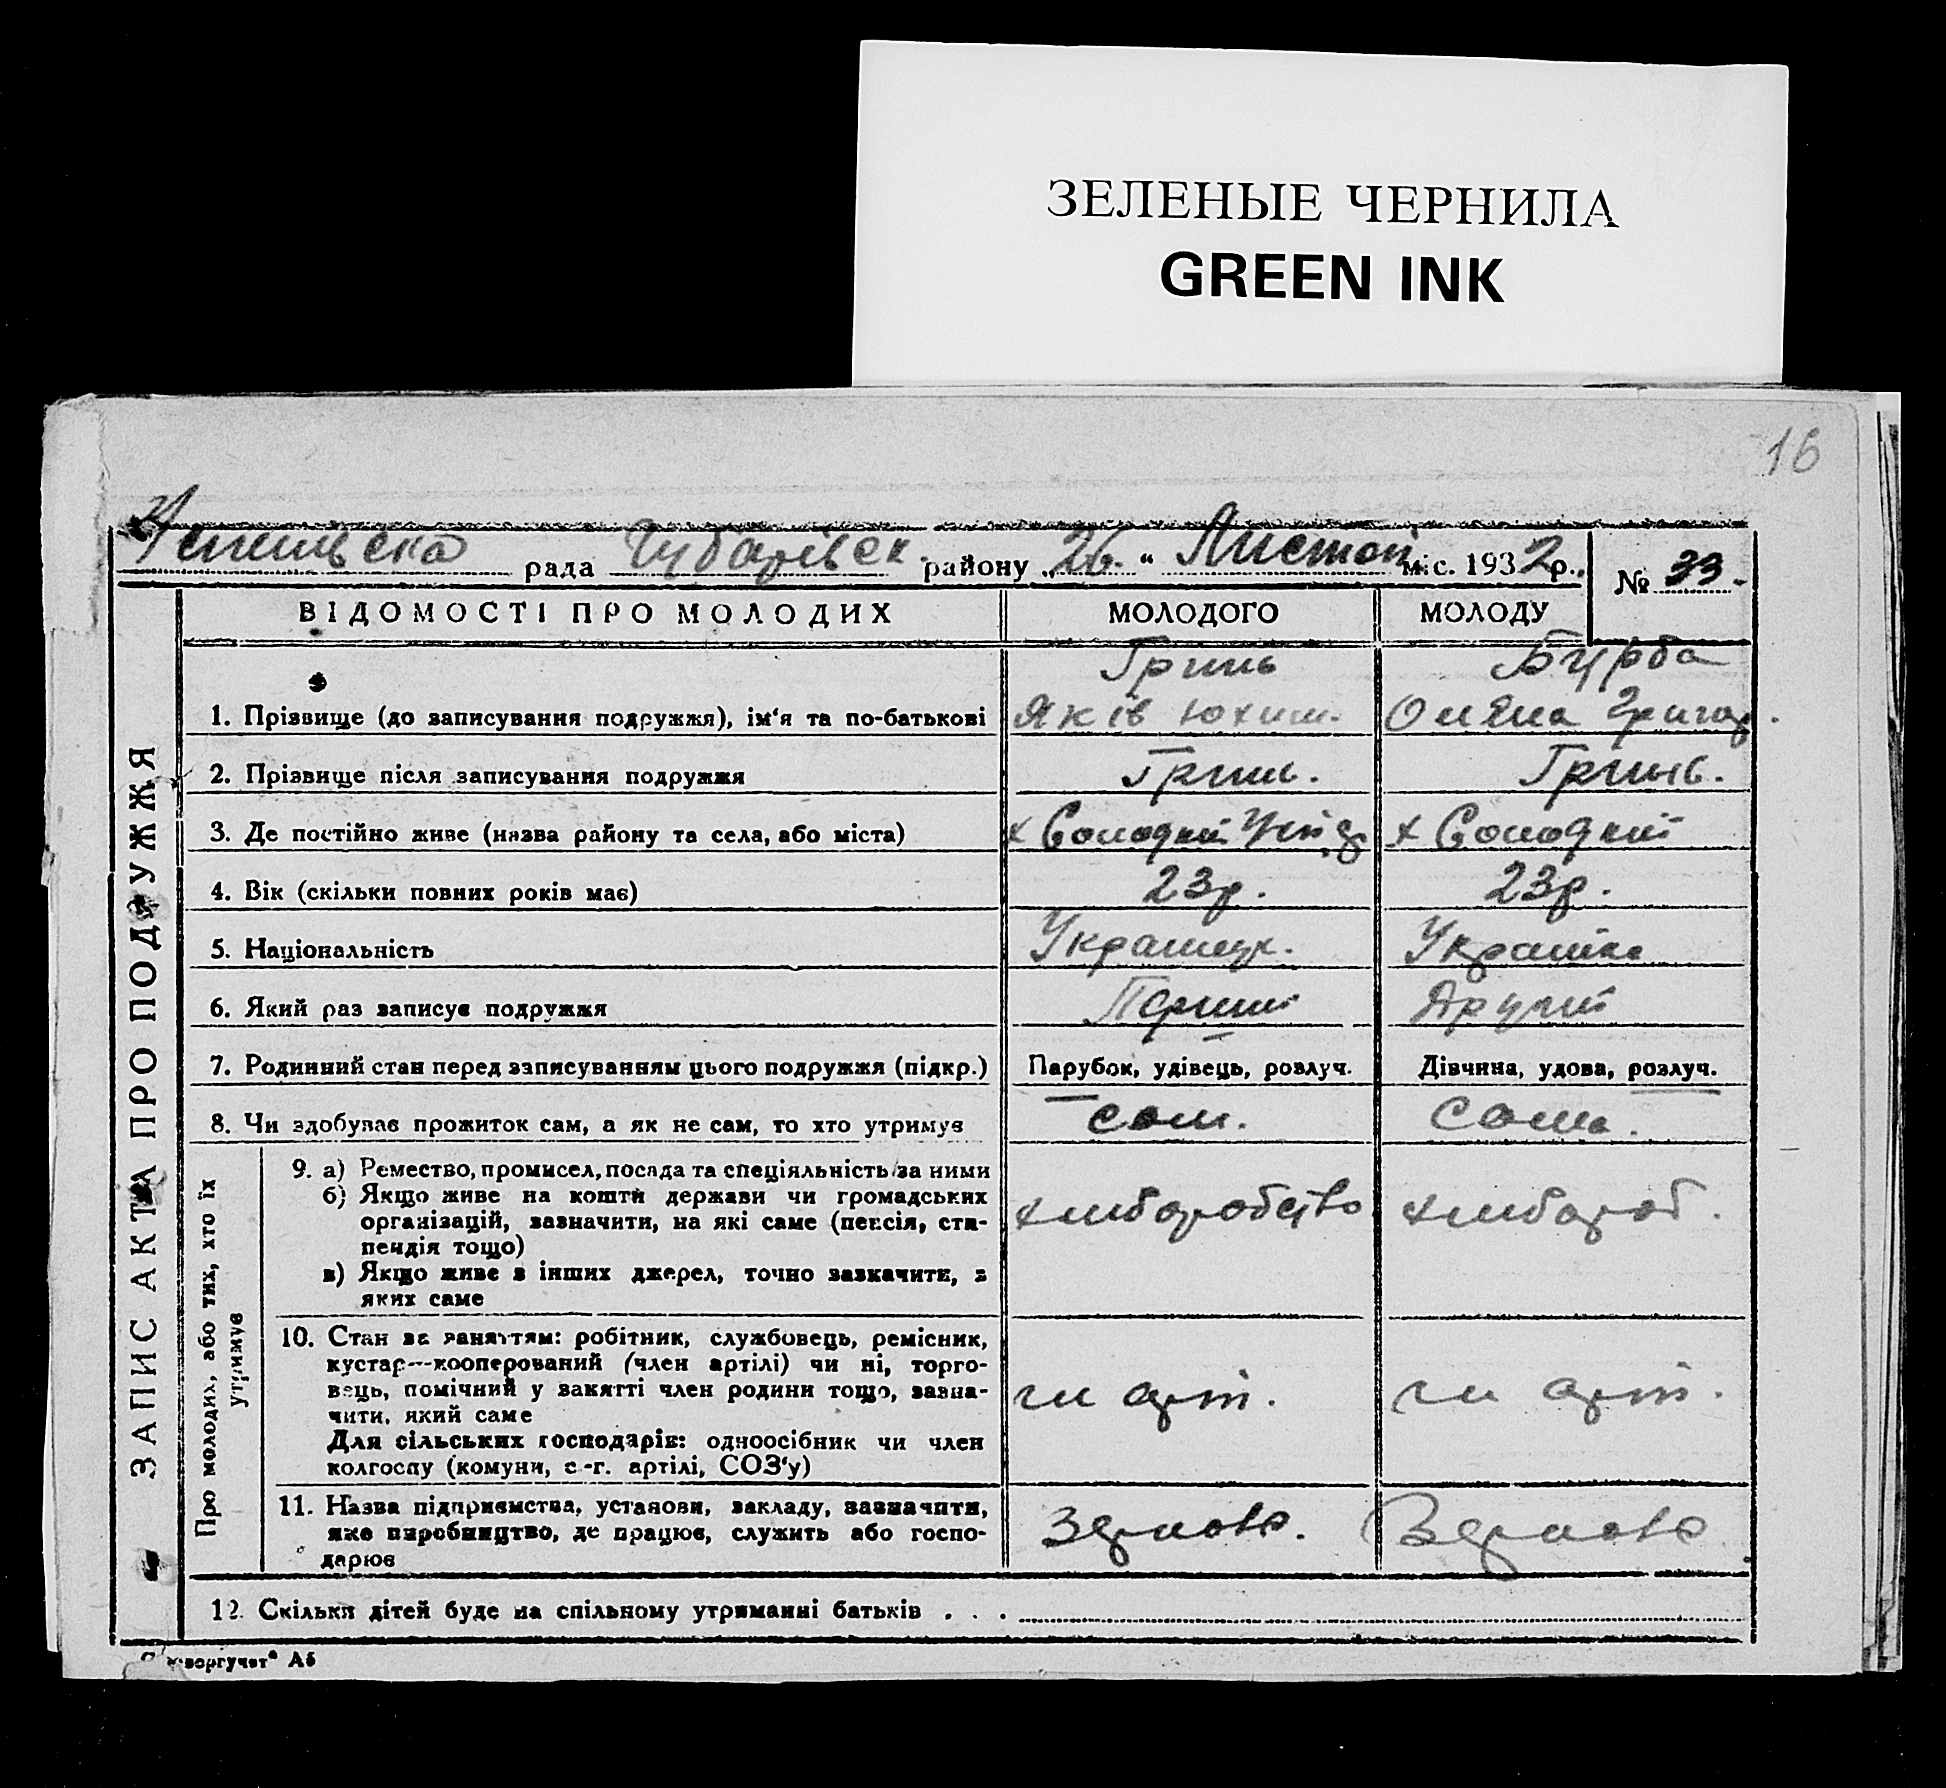 ЗЕЛЕНЫЕ ЧЕРНИЛА
GREEN INK
16
Успенівська рада Чубарівськ району „26“ Листоп. міс. 1932 р., № 33.
ЗАПИС АКТА ПРО ПОДРУЖЖЯ
ВІДОМОСТІ ПРО МОЛОДИХ МОЛОДОГО МОЛОДУ
Гринь Бурба
1. Прізвище (до записування подружжя), ім'я та по-батькові Яків Юхим. Оляна Григор.
2. Прізвище після записування подружжя Гринь. Гринь.
3. Де постійно живе (назва району та села, або міста) х Солодкий х Солодкий
4. Вік (скільки повних років має) 23 р. 23 р.
5. Національність Українец. Українка
6. Який раз записує подружжя Перший Другий
7. Родинний стан перед записуванням цього подружжя (підкр.) Парубок, удівець, розлуч. Дівчина, удова, розлуч.
8. Чи здобуває прожиток сам, а як не сам, то хто утримує сам. сама.
Про молодих, або тих, хто їх утримує
9. а) Ремество, промисел, посада та спеціяльність за ними
б) Якщо живе на кошти держави чи громадських
організацій, зазначити, на які саме (пенсія, сти-
пендія тощо)
в) Якщо живе з інших джерел, точно зазначити, з
яких саме
хліборобство хлібороб.
10. Стан за заняттям: робітник, службовець, ремісник,
кустар—кооперований (член артілі) чи ні, торго-
вець, помічний у занятті член родини тощо, зазна-
чити, який саме
Для сільських господарів: одноосібник чи член
колгоспу (комуни, с.-г. артілі, СОЗ'у)
чл арт. чл арт.
11. Назва підприємства, установи, закладу, зазначити,
яке виробництво, де працює, служить або госпо-
дарює
12. Скільки дітей буде на спільному утриманні батьків . . .